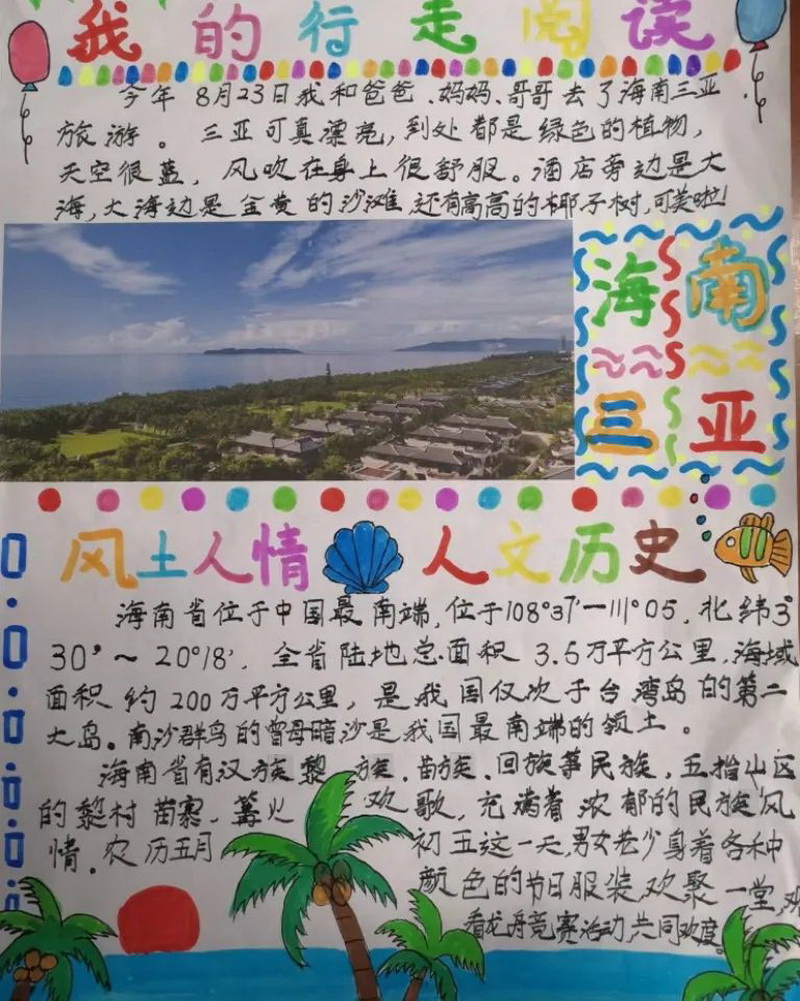 我的行走阅读
今年8月23日我和爸爸、妈妈、哥哥去了海南三亚
旅游。三亚可真漂亮,到处都是绿色的植物,
天空很蓝,风吹在身上很舒服。酒店旁边是大
海,大海边是金黄的沙滩还有高高的椰子树,可美啦!
海南
三亚
风土人情 人文历史
海南省位于中国最南端,位于108°37′—111°05,北纬3°
30′~20°18′,全省陆地总面积3.5万平方公里,海域
面积约200万平方公里,是我国仅次于台湾岛的第二
大岛。南沙群岛的曾母暗沙是我国最南端的领土。
海南省有汉族黎族、苗族、回族等民族,五指山区
的黎村苗寨,篝火欢歌,充满着浓郁的民族风
情。农历五月初五这一天,男女老少身着各种
颜色的节日服装,欢聚一堂,观
看龙舟竞赛活动,共同欢度